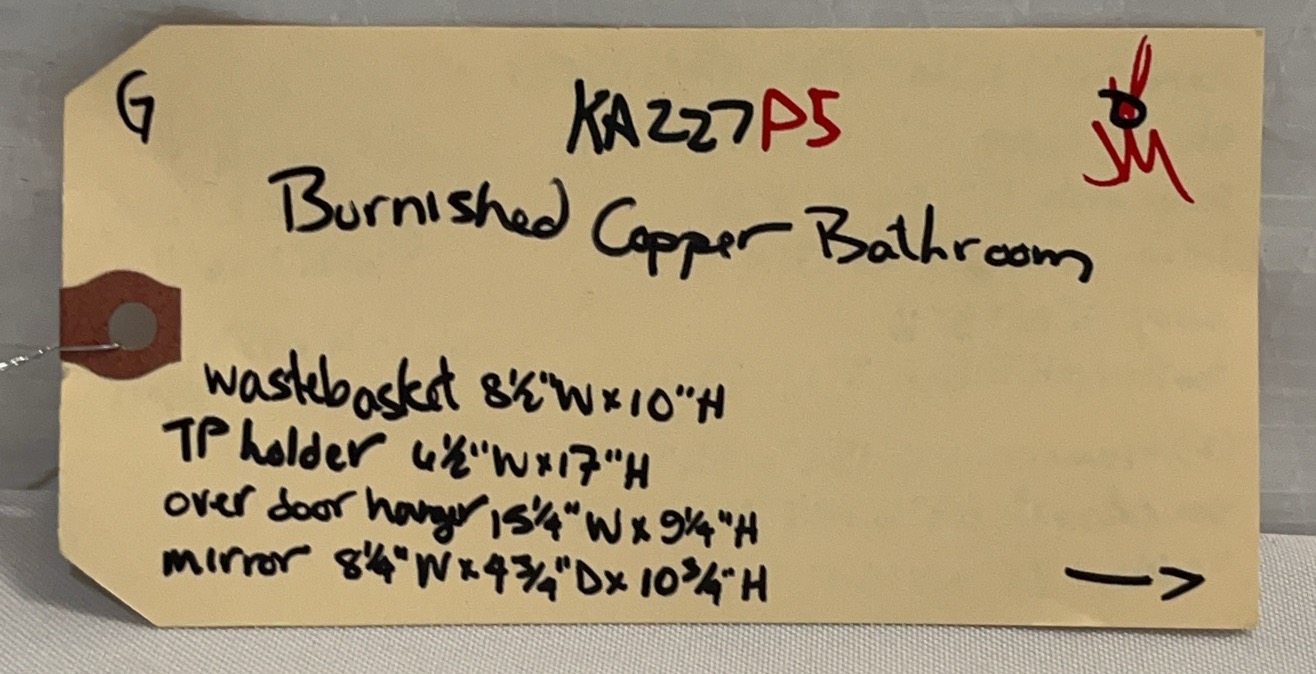 G
KA227P5
Burnished Copper Bathroom
wastebasket 8½"W x 10"H
TP holder 6½"W x 17"H
over door hanger 15¼"W x 9¼"H
mirror 8¼"W x 4¾"D x 10¾"H